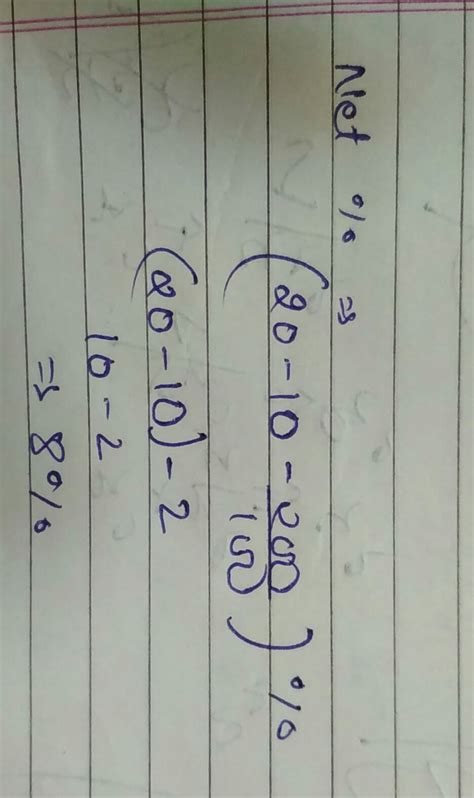 Net % ⇒
(20 - 10 - 200/100) %
(20 - 10) - 2
10 - 2
⇒ 8%